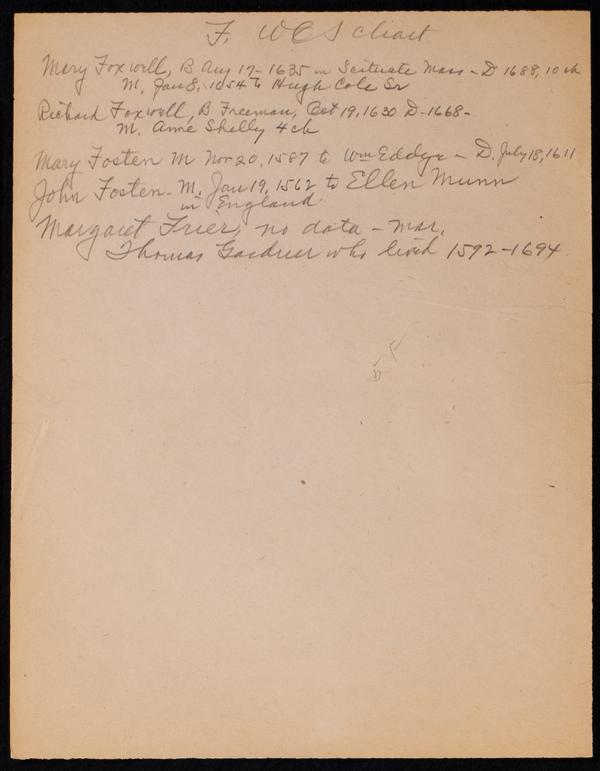 F, WCS chart
Mary Foxwell, B Aug 17-1635 in Scituate Mass - D 1688, 10 ch
M, Jan 8, 1654 to Hugh Cole Sr
Richard Foxwell, B Freeman, Oct 19, 1630 D-1668-
M. Anne Shelly 4 ch
Mary Fosten M Nov 20, 1587 to Wm Eddye - D. July 18, 1611
John Fosten - M. Jan 19, 1562 to Ellen Munn
in England.
Margaret Frier, no data - mar,
Thomas Gardner who lived 1592-1694